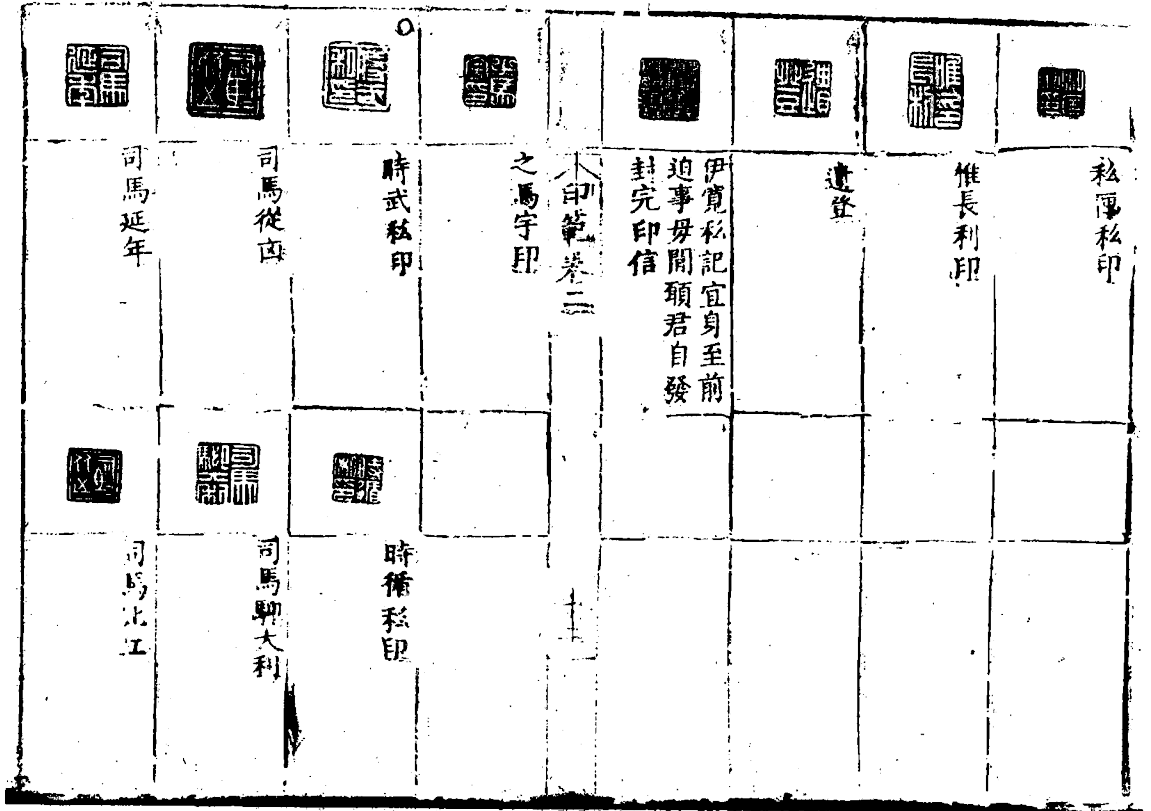 私印
惟長利印
遺登
伊寬私記宜身至前
迫事毋閒願君自發
封完印信
印範卷二
之馬宇印
時武私印
時循私印
司馬從
司馬聊大利
司馬延年
司馬